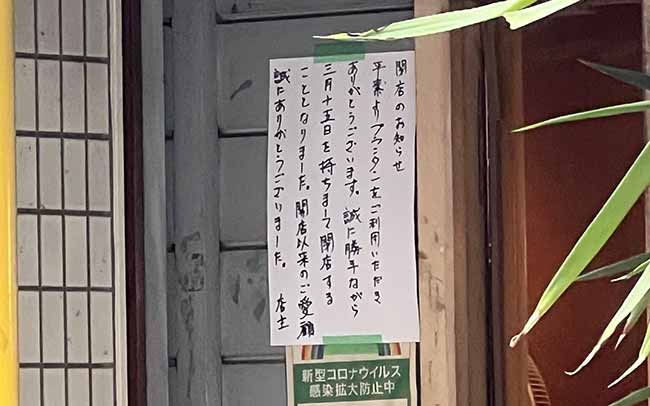 閉店のお知らせ
平素よりプランタンをご利用いただき
ありがとうございます。誠に勝手ながら
三月十五日を持ちまして閉店する
こととなりました。開店以来のご愛顧
誠にありがとうございました。 店主
新型コロナウイルス
感染拡大防止中